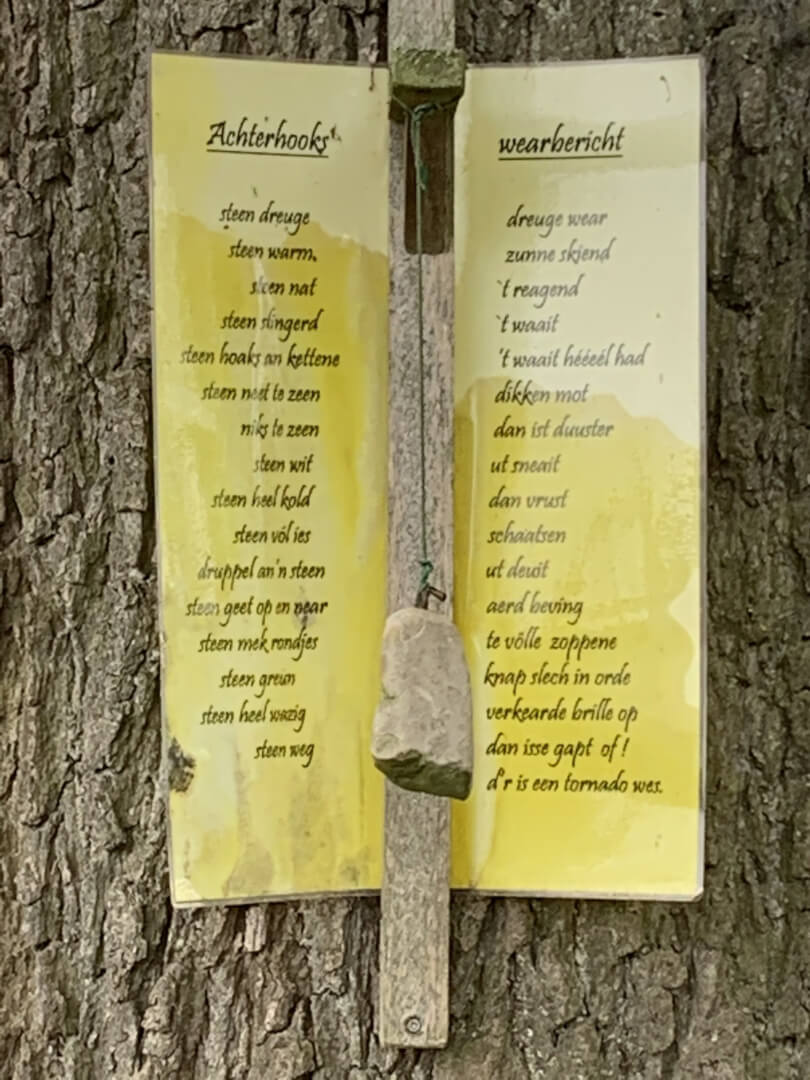 Achterhooks wearbericht
steen dreuge dreuge wear
steen warm. zunne skiend
steen nat `t reagend
steen slingerd `t waait
steen hoaks an kettene 't waait hééeél had
steen neet te zeen dikken mot
niks te zeen dan ist duuster
steen wit ut sneait
steen heel kold dan vrust
steen vól ies schaatsen
druppel an'n steen ut deuit
steen geet op en near aerd beving
steen mek rondjes te völle zoppene
steen greun knap slech in orde
steen heel wazig verkearde brille op
steen weg dan isse gapt of !
d'r is een tornado wes.